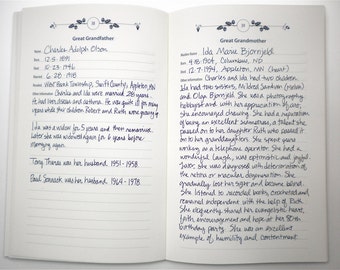 Great Grandfather
Name Charles Adolph Olson
Born 12.5.1891
Died 10.23.1946
Married 6.28.1918
Places West Bank Township, Swift County, Appleton, MN
Other Information Charles and Ida were married 28 years.
He had heart disease and asthma. He was quite ill for many
years while their children Robert and Ruth were growing up.
Ida was a widow for 5 years and then remarried.
Later she was widowed again for 6 years before
marrying again.
Tony Thoma was her husband 1951-1958.
Paul was her husband 1964-1978.
Great Grandmother
Maiden Name Ida Marie Bjornjeld
Born 4.18.1904, Columbus, ND
Died 12.7.1994, Appleton, MN
Other Information Charles and Ida had two children.
Ida had two sisters, Melba and
and Olga Bjornjeld. She was a photography
hobbyist and with her appreciation of
she enjoyed drawing. She had a reputation
of being an excellent seamstress, a talent she
passed on to her daughter Ruth who passed it
on to her granddaughters. She spent years
working as a telephone operator. She had a
wonderful laugh, was optimistic and enjoyed
She was diagnosed with deterioration of
the retina or macular degeneration. She
gradually lost her sight and became blind.
She listened to recorded books, crocheted and
remained independent with the help of Ruth.
She eloquently shared her evangelistic heart,
faith, encouragement and hope at her 80th
birthday party. She was an excellent
example of humility and contentment.